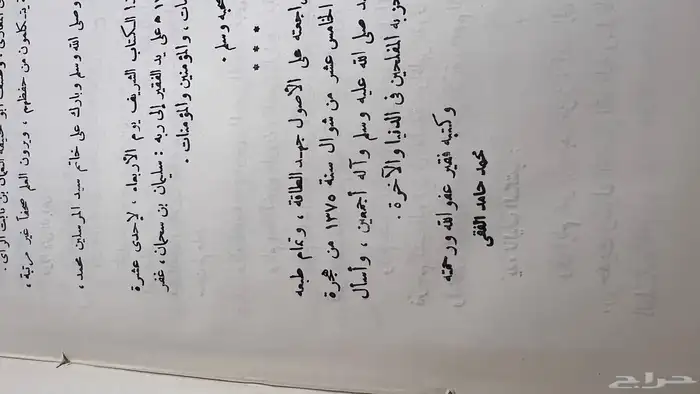 النعمان بن ثابت
يتكلمون من حفظهم ، ويرون العلم صحفاً غير مرتبة ،
وصلى الله وسلم وبارك على خاتم سيد المرسلين محمد ،
الكتاب الشريف يوم الأربعاء ، لإحدى عشرة
على يد الفقير إلى ربه : سليمان بن سحمان ، غفر
، والمؤمنين والمؤمنات .
وسلم .
* * *
على الأصول جهد الطاقة ، وتمام طبعه
الخامس عشر من شوال سنة ١٣٧٥ من هجرة
صلى الله عليه وسلم وآله أجمعين ، وأسأل
حزبه المفلحين في الدنيا والآخرة .
وكتبه فقير عفو الله ورحمته
محمد حامد الفقي
حراج